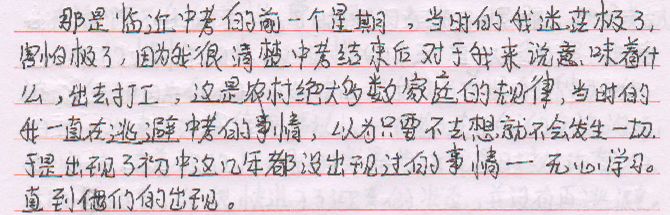 那是临近中考的前一个星期，当时的我迷茫极了，
害怕极了，因为我很清楚中考结束后对于我来说意味着什
么，出去打工，这是农村绝大多数家庭的规律，当时的
我一直在逃避中考的事情，以为只要不去想就不会发生一切.
于是出现了初中这几年都没出现过的事情一无心学习。
直到他们的出现。